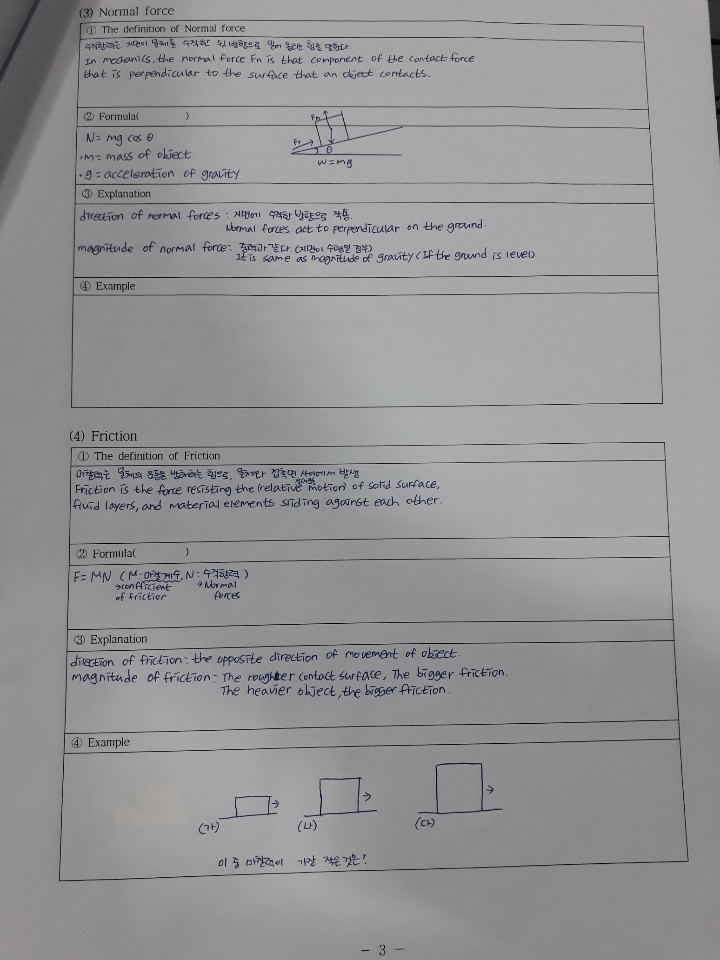 (3) Normal force
① The definition of Normal force
수직항력은 지면이 물체를 수직한 위 방향으로 밀어 올리는 힘을 말한다.
In mechanics, the normal force Fn is that component of the contact force
that is perpendicular to the surface that an object contacts.
② Formula( )
N = mg cos θ
·m = mass of object
·g = acceleration of gravity
Fn
Fr
θ
W = mg
③ Explanation
direction of normal forces : 지면에 수직한 방향으로 작용.
Normal forces act to perpendicular on the ground.
magnitude of normal force: 중력과 같다. (지면이 수평일 경우)
It is same as magnitude of gravity (If the ground is level)
④ Example
(4) Friction
① The definition of Friction
마찰력은 물체의 운동을 방해하는 힘으로, 물체와 접촉면 사이에서 발생
Friction is the force resisting the (relative motion) of solid surface,
fluid layers, and material elements sliding against each other.
② Formula( )
F = MN ( M: 마찰계수, N : 수직항력 )
→ confficient → Normal
of friction forces
③ Explanation
direction of friction: the opposite direction of movement of object.
magnitude of friction: The roughter contact surface, The bigger friction.
The heavier object, the bigger friction.
④ Example
(가) (나) (다)
이 중 마찰력이 가장 작은 것은?
- 3 -